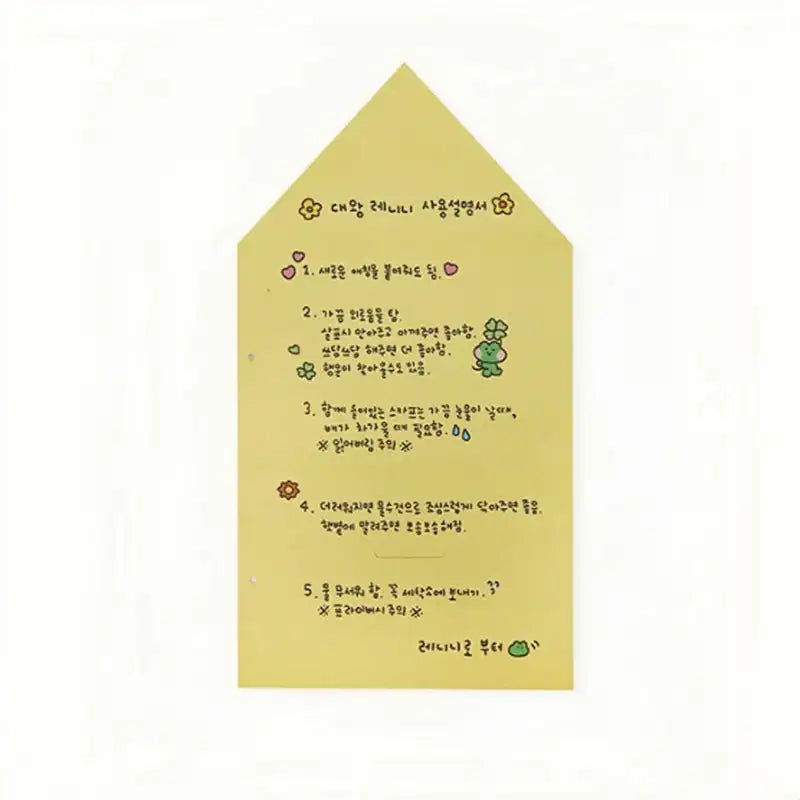 대왕 레니니 사용설명서
1. 새로운 애칭을 붙여줘도 됨.
2. 가끔 외로움을 탐.
살포시 안아주고 아껴주면 좋아함.
쓰담쓰담 해주면 더 좋아함.
행운이 찾아올수도 있음.
3. 함께 들어있는 스카프는 가끔 눈물이 날때,
배가 차가울 때 필요함.
※ 잃어버림 주의 ※
4. 더러워지면 물수건으로 조심스럽게 닦아주면 좋음.
햇볕에 말려주면 보송보송해짐.
5. 물 무서워 함. 꼭 세탁소에 보내기.
※ 프라이버시 주의 ※
레니니로 부터